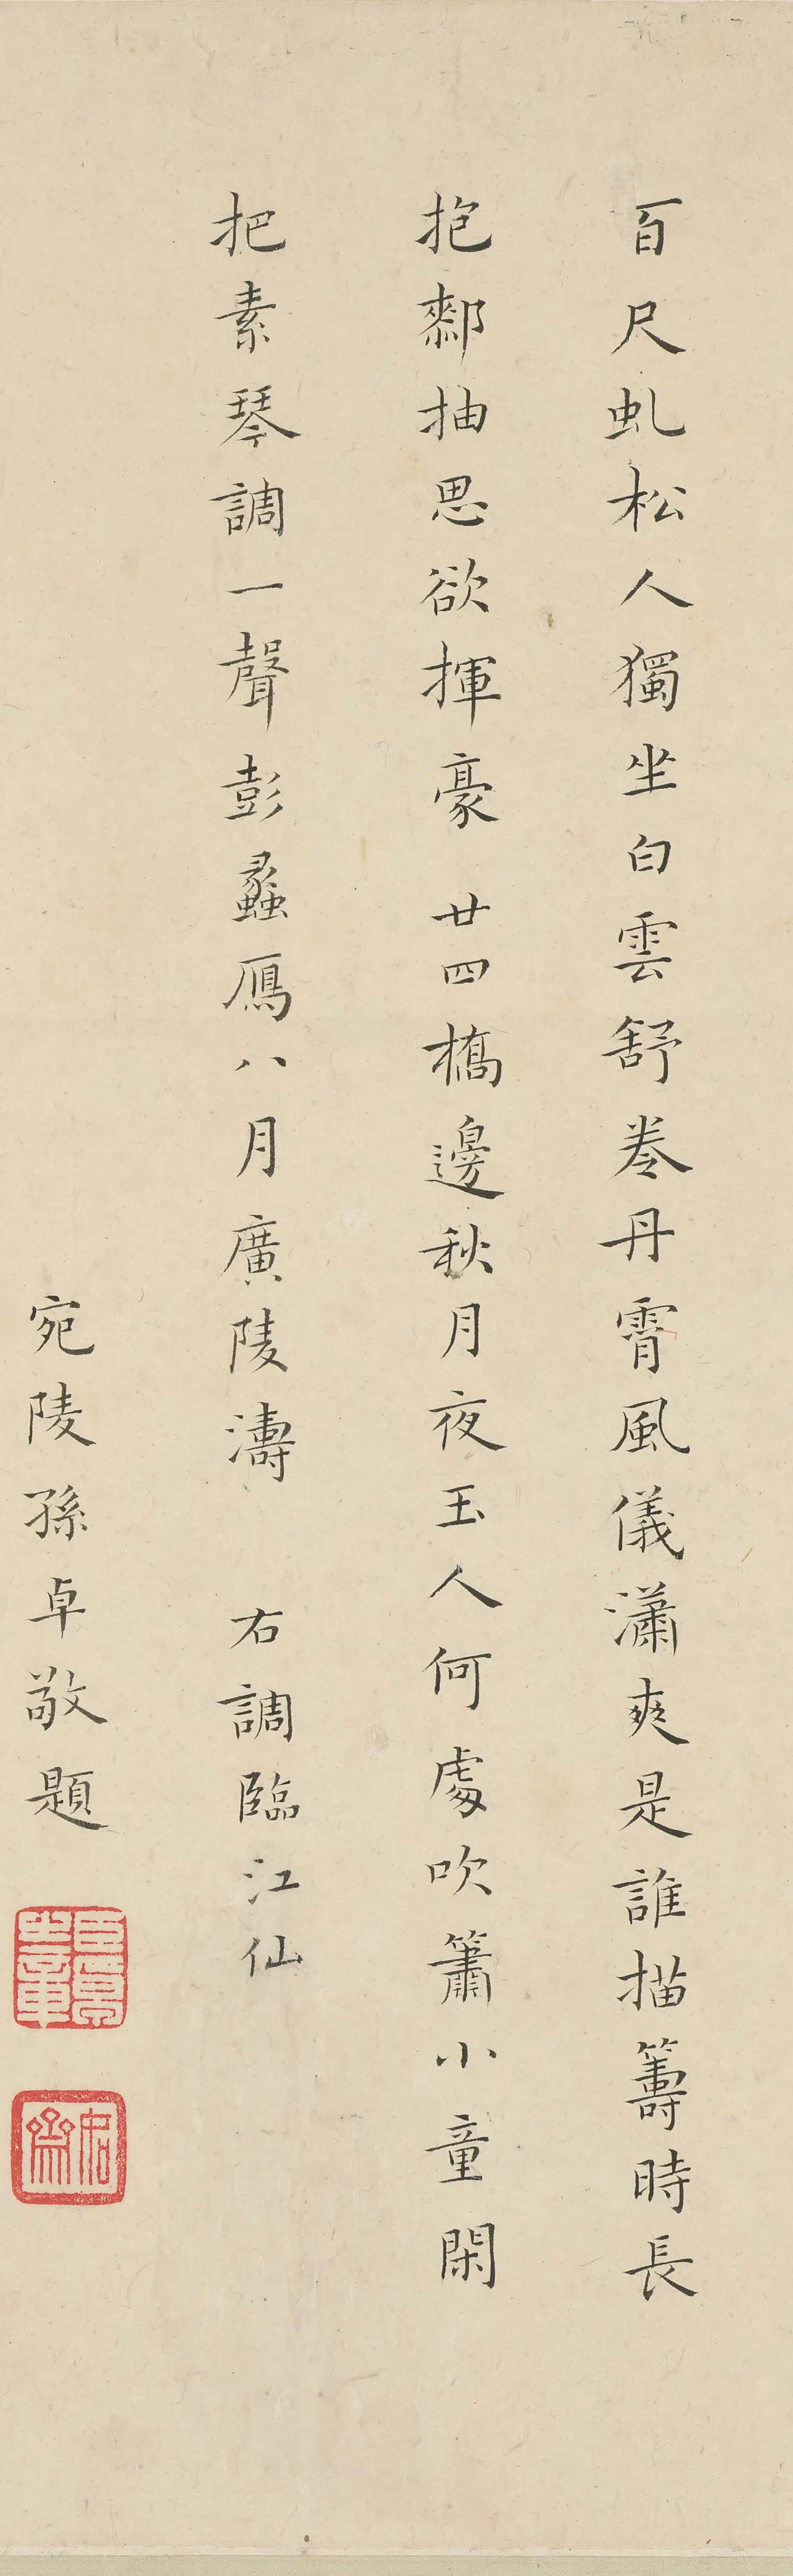 百尺虬松人獨坐白雲舒卷丹霄風儀瀟爽是誰描籌時長
抱厀抽思欲揮豪 廿四橋邊秋月夜玉人何處吹簫小童閑
把素琴調一聲彭蠡鴈八月廣陵濤 右調臨江仙
宛陵孫卓敬題